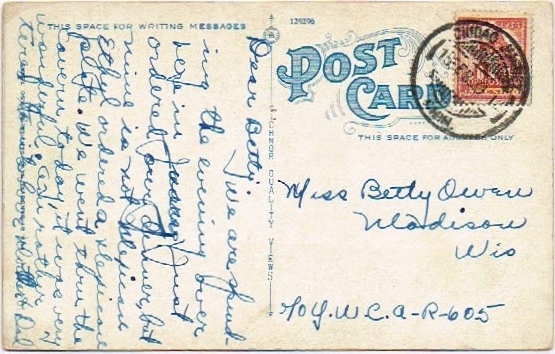 THIS SPACE FOR WRITING MESSAGES
129296
POST
CARD
THIS SPACE FOR ADDRESS ONLY
QUALITY VIEWS
CIUDAD
Dear Betty:
We are spend-
ing the evening over
here in Juarez. Just
ordered our dinner, but
mine is not Mexican
Ethyl ordered a Mexican
plate. We went thru the
cavern today. It was very
wonderful.
Miss Betty Owen
Madison
Wis
Y.W.C.A-R-605